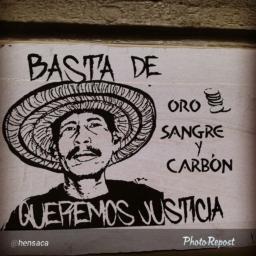 BASTA DE
ORO
SANGRE
Y
CARBÓN
QUEREMOS JUSTICIA
@hensaca
PhotoRepost